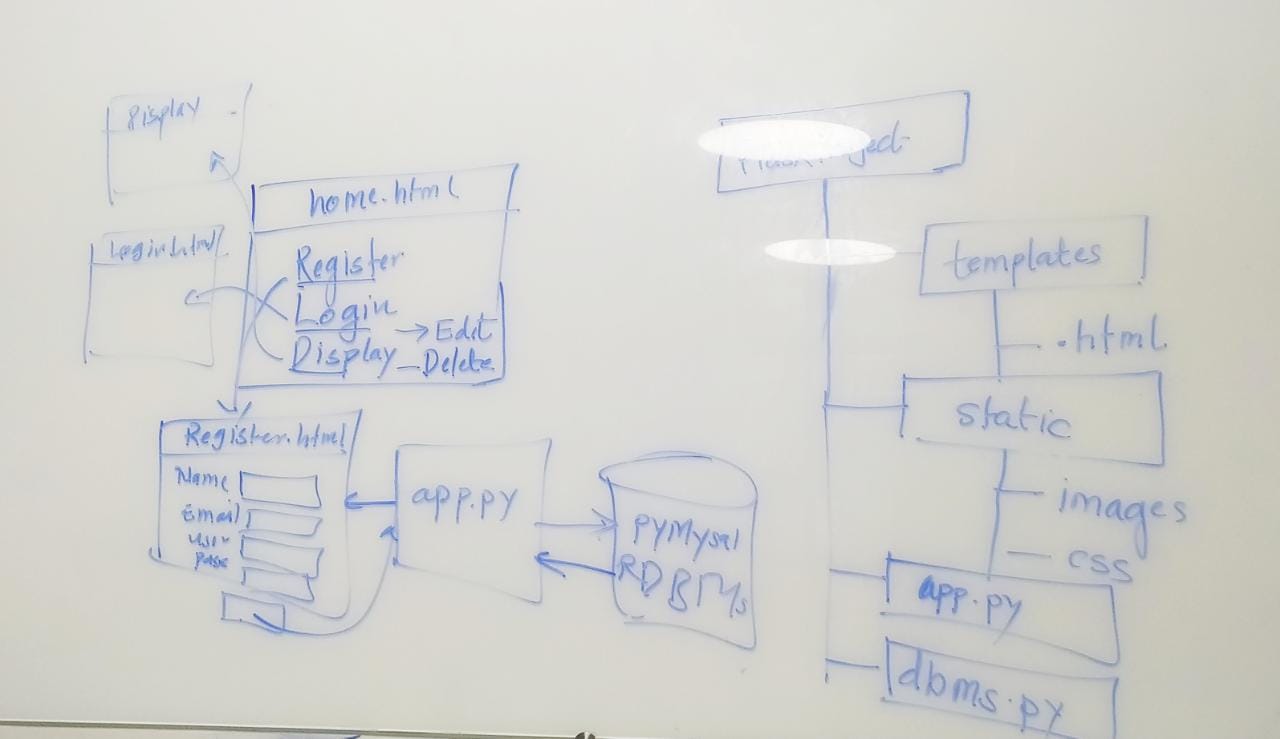 Display
home.html
Login.html
Register
Login
→ Edit
Display — Delete
Register.html
Name
Email
user
Pass
app.py
PYMysql
RDBMs
templates
.html
static
images
css
app.py
dbms.py